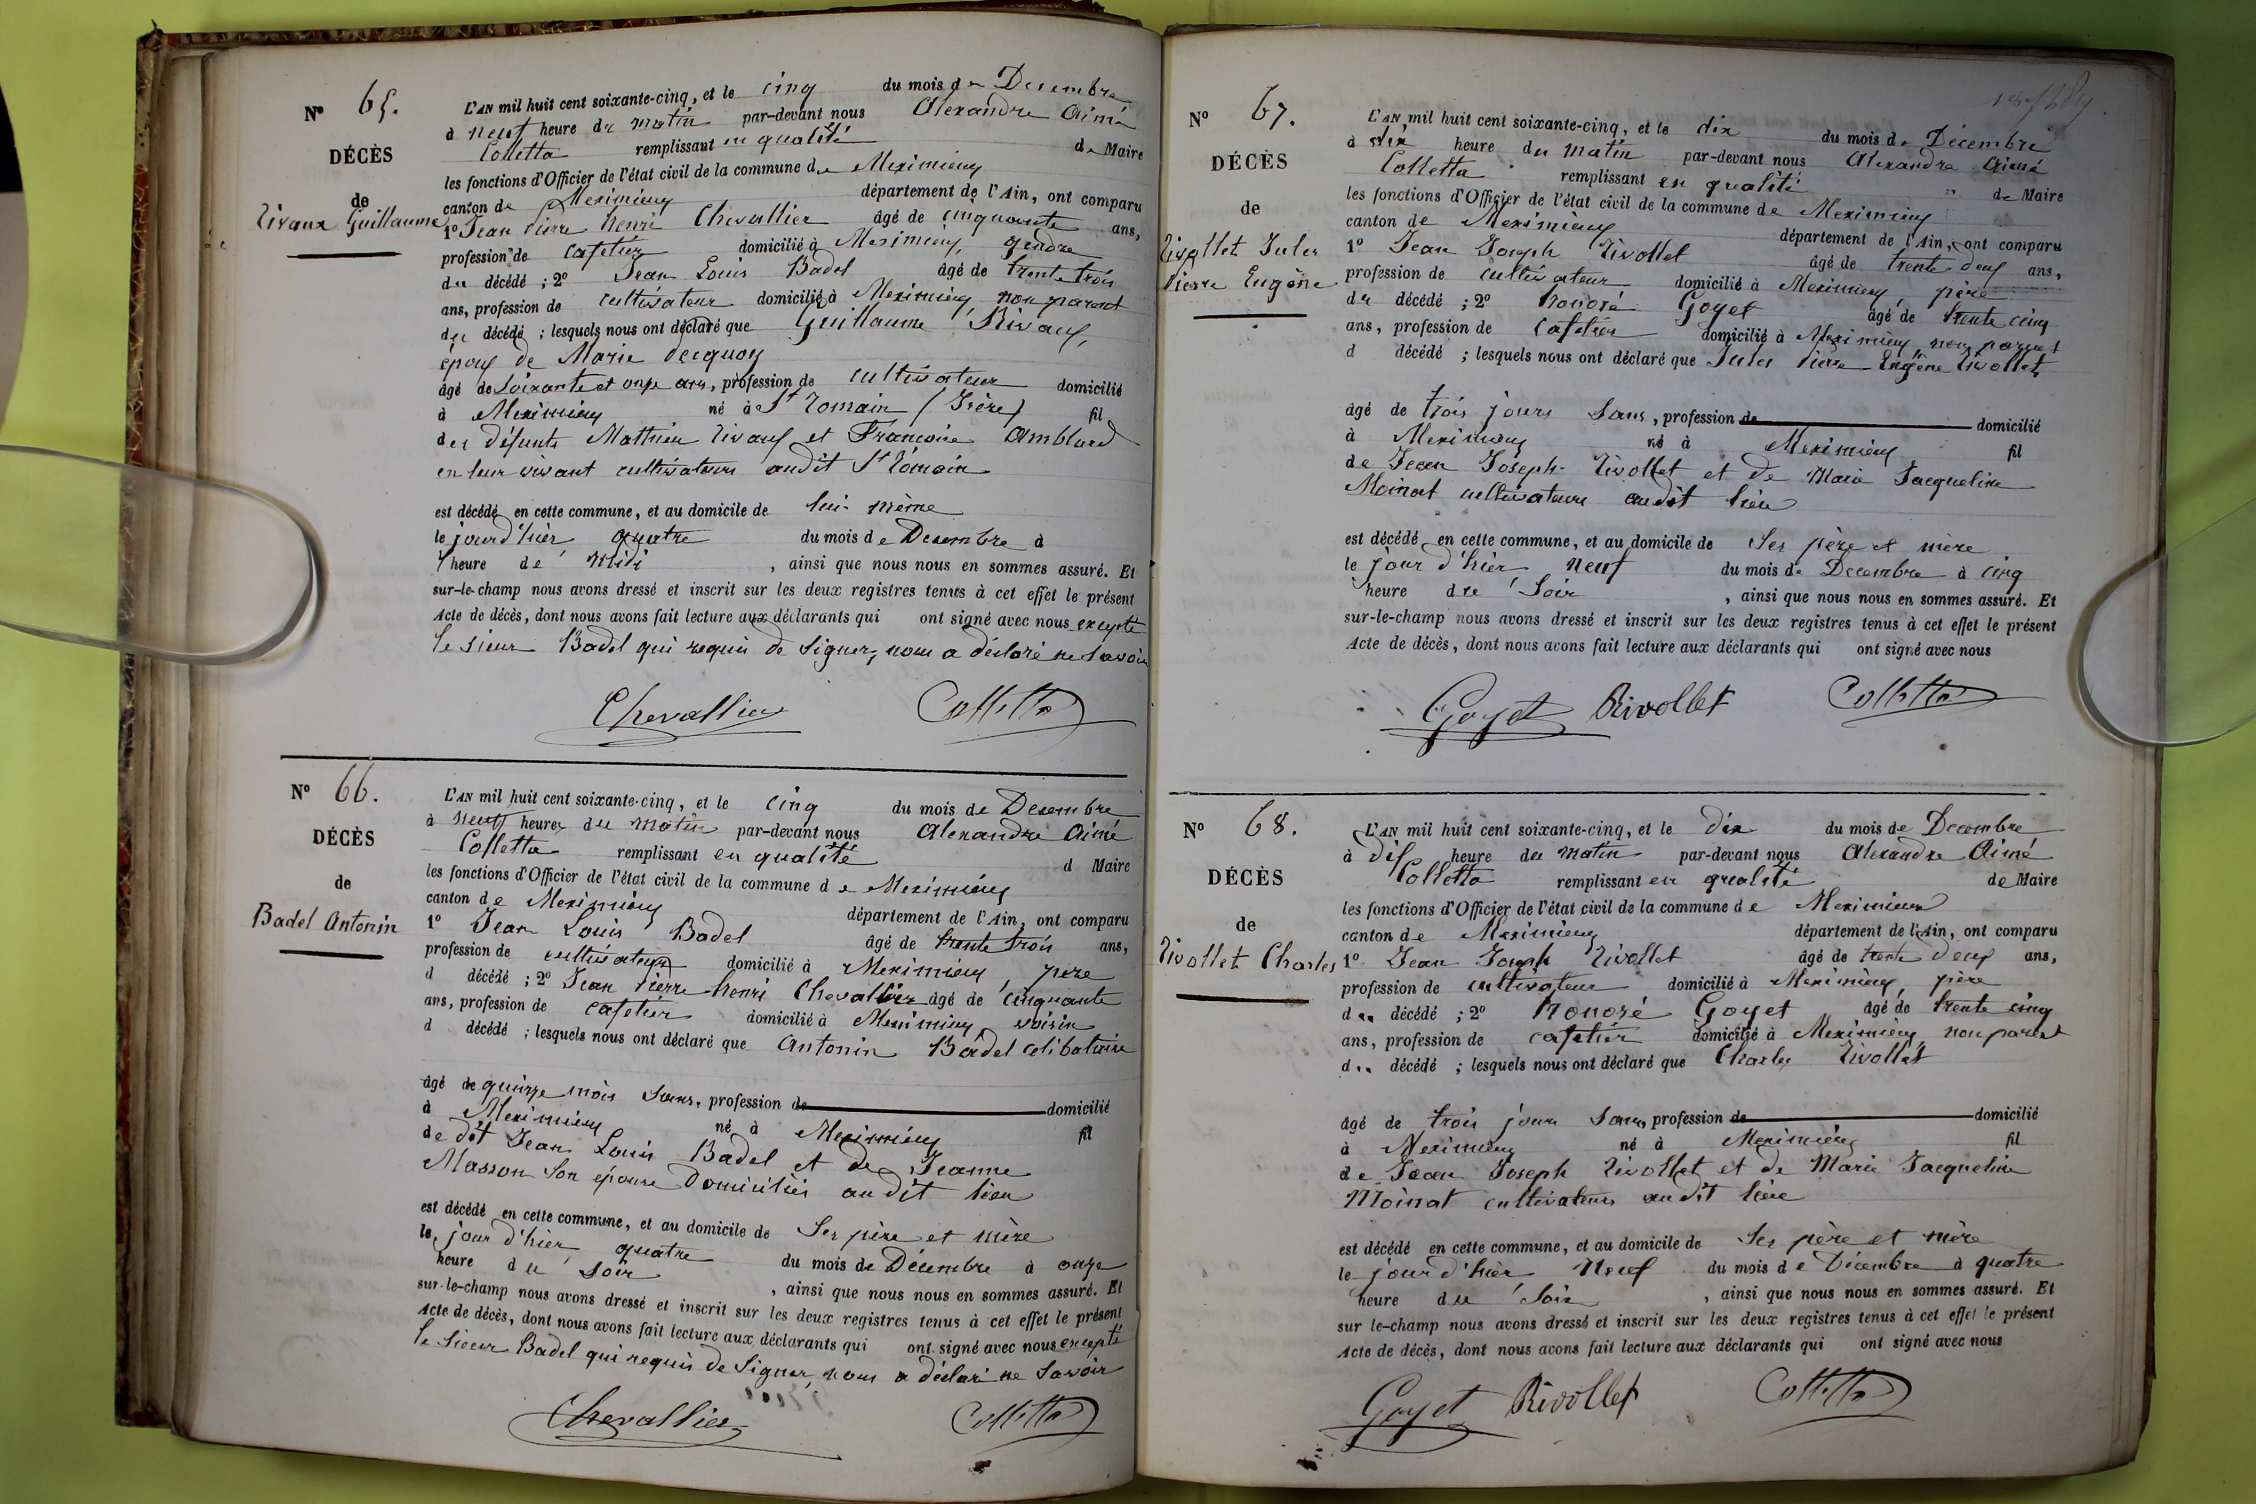 N° 65.
DÉCÈS
de
Rivaux Guillaume
L'AN mil huit cent soixante-cinq, et le cinq du mois de Decembre
à neuf heure du matin par-devant nous Alexandre Aimé
Colletta remplissant en qualité de Maire
les fonctions d'Officier de l'état civil de la commune de Meximieux
canton de Meximieux département de l'Ain, ont comparu
1° Jean Pierre henri Chevallier âgé de cinquante ans,
profession de cafetier domicilié à Meximieux, gendre
du décédé ; 2° Jean Louis Badel âgé de trente trois
ans, profession de cultivateur domicilié à Meximieux non parent
du décédé ; lesquels nous ont déclaré que Guillaume Rivaux,
époux de Marie Decquoy
âgé de soixante et onze ans, profession de cultivateur domicilié
à Meximieux né à St Romain (Isère) fil
des défunts Mathieu Rivaux et Francoise Amblard
en leur vivant cultivateurs audit St Romain
est décédé en cette commune, et au domicile de lui-même
le jourd'hier quatre du mois de Decembre à
heure de midi , ainsi que nous nous en sommes assuré. Et
sur-le-champ nous avons dressé et inscrit sur les deux registres tenus à cet effet le présent
Acte de décès, dont nous avons fait lecture aux déclarants qui ont signé avec nous excepté
le sieur Badel qui requis de signer, nous a déclaré ne savoir
Chevallier Colletta
N° 66.
DÉCÈS
de
Badel Antonin
L'AN mil huit cent soixante-cinq, et le cinq du mois de Decembre
à neuf heures du matin par-devant nous Alexandre Aimé
Colletta remplissant en qualité d Maire
les fonctions d'Officier de l'état civil de la commune de Meximieux
canton de Meximieux département de l'Ain, ont comparu
1° Jean Louis Badel âgé de trente trois ans,
profession de cultivateur domicilié à Meximieux, père
d décédé ; 2° Jean Pierre henri Chevallier âgé de cinquante
ans, profession de cafetier domicilié à Meximieux, voisin
d décédé ; lesquels nous ont déclaré que Antonin Badel celibataire
âgé de quinze mois sans, profession de domicilié
à Meximieux né à Meximieux fil
de dit Jean Louis Badel et de Jeanne
Masson son épouse domiciliés audit lieu
est décédé en cette commune, et au domicile de ses père et mère
le jour d'hier quatre du mois de Décembre à onze
heure du soir , ainsi que nous nous en sommes assuré. Et
sur-le-champ nous avons dressé et inscrit sur les deux registres tenus à cet effet le présent
Acte de décès, dont nous avons fait lecture aux déclarants qui ont signé avec nous excepté
le sieur Badel qui requis de signer, nous a déclaré ne savoir
Chevallier Colletta
N° 67.
DÉCÈS
de
Rivollet Jules
Pierre Eugène
L'AN mil huit cent soixante-cinq, et le dix du mois de Décembre
à dix heure du matin par-devant nous Alexandre Aimé
Colletta remplissant en qualité de Maire
les fonctions d'Officier de l'état civil de la commune de Meximieux
canton de Meximieux département de l'Ain, ont comparu
1° Jean Joseph Rivollet âgé de trente deux ans,
profession de cultivateur domicilié à Meximieux, père
du décédé ; 2° honoré Goyet âgé de trente cinq
ans, profession de cafetier domicilié à Meximieux non parent
d décédé ; lesquels nous ont déclaré que Jules Pierre Eugène Rivollet
âgé de trois jours sans, profession de domicilié
à Meximieux né à Meximieux fil
de Jean Joseph Rivollet et de Marie Jacqueline
Moinat cultivateurs audit lieu
est décédé en cette commune, et au domicile de ses père et mère
le jour d'hier neuf du mois de Decembre à cinq
heure du soir , ainsi que nous nous en sommes assuré. Et
sur-le-champ nous avons dressé et inscrit sur les deux registres tenus à cet effet le présent
Acte de décès, dont nous avons fait lecture aux déclarants qui ont signé avec nous
Goyet Rivollet Colletta
N° 68.
DÉCÈS
de
Rivollet Charles
L'AN mil huit cent soixante-cinq, et le dix du mois de Decembre
à dix heure du matin par-devant nous Alexandre Aimé
Colletta remplissant en qualité de Maire
les fonctions d'Officier de l'état civil de la commune de Meximieux
canton de Meximieux département de l'Ain, ont comparu
1° Jean Joseph Rivollet âgé de trente deux ans,
profession de cultivateur domicilié à Meximieux, père
du décédé ; 2° honoré Goyet âgé de trente cinq
ans, profession de cafetier domicilié à Meximieux, non parent
du décédé ; lesquels nous ont déclaré que Charles Rivollet
âgé de trois jours sans, profession de domicilié
à Meximieux né à Meximieux fil
de Jean Joseph Rivollet et de Marie Jacqueline
Moinat cultivateurs audit lieu
est décédé en cette commune, et au domicile de ses père et mère
le jour d'hier neuf du mois de Décembre à quatre
heure du soir , ainsi que nous nous en sommes assuré. Et
sur le-champ nous avons dressé et inscrit sur les deux registres tenus à cet effet le présent
Acte de décès, dont nous avons fait lecture aux déclarants qui ont signé avec nous
Goyet Rivollet Colletta